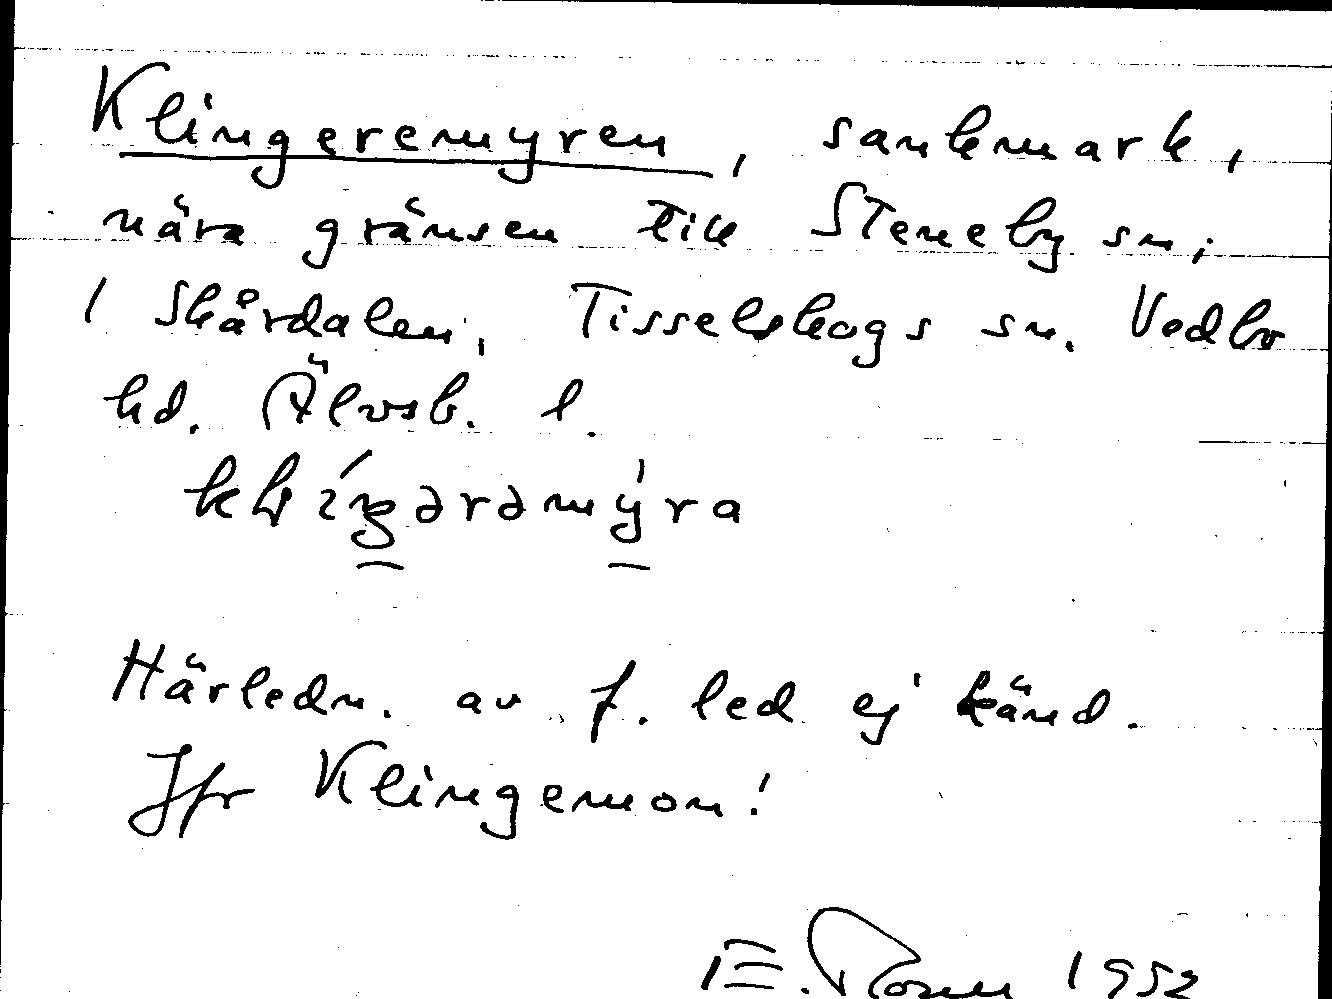 Klingeremyren, sankmark,
nära gränsen till Steneby sn,
i Skårdalen, Tisselskogs sn. Vedbo
hd. Älvsb. l.
Härledn. av f. led ej känd.
Jfr Klingemon!
E. 1952